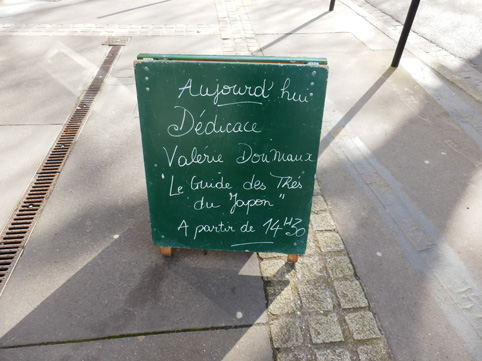 Aujourd'hui
Dédicace
Valérie Douniaux
"Le Guide des Thés
du Japon"
A partir de 14H30